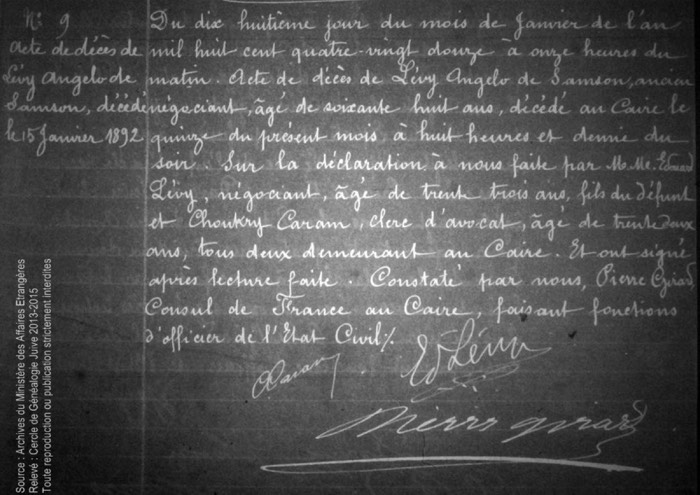 N° 9
Acte de décès de
Lévy Angelo de
Samson, décédé
le 15 Janvier 1892
Du dix huitième jour du mois de Janvier de l'an
mil huit cent quatre-vingt douze à onze heures du
matin. Acte de décès de Lévy Angelo de Samson, ancien
négociant, âgé de soixante huit ans, décédé au Caire le
quinze du présent mois à huit heures et demie du
soir. Sur la déclaration à nous faite par M.M. Edouard
Lévy, négociant, âgé de trente trois ans, fils du défunt
et Choukry Caram, clerc d'avocat, âgé de trente deux
ans, tous deux demeurant au Caire. Et ont signé
après lecture faite. Constaté par nous, Pierre Girard
Consul de France au Caire, faisant fonctions
d'officier de l'Etat Civil ./.
CCaram
Ed Lévy
Pierre Girard
Source : Archives du Ministère des Affaires Etrangères
Relevé : Cercle de Généalogie Juive 2013-2015
Toute reproduction ou publication strictement interdites